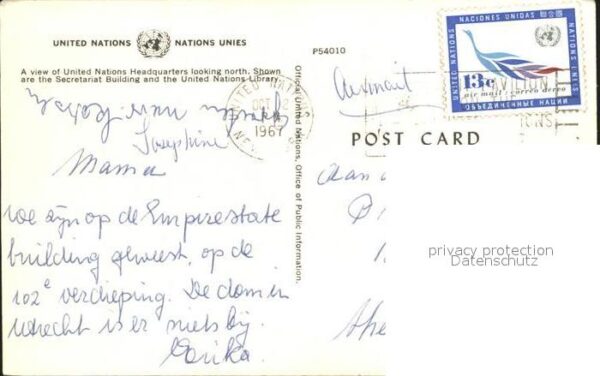 UNITED NATIONS NATIONS UNIES
A view of United Nations Headquarters looking north. Shown
are the Secretariat Building and the United Nations Library.
P54010
Official United Nations, Office of Public Information.
UNITED NATIONS
OCT 2
1967
NEW
NACIONES UNIDAS
UNITED NATIONS
NATIONS UNIES
13c
air mail correo aéreo
ОБЪЕДИНЕННЫЕ НАЦИИ
Airmail
POST CARD
Josephine
Mama
we zijn op de Empirestate
building geweest, op de
102e verdieping. De dom in
utrecht is er niets bij.
Erika.
Aan
privacy protection
Datenschutz